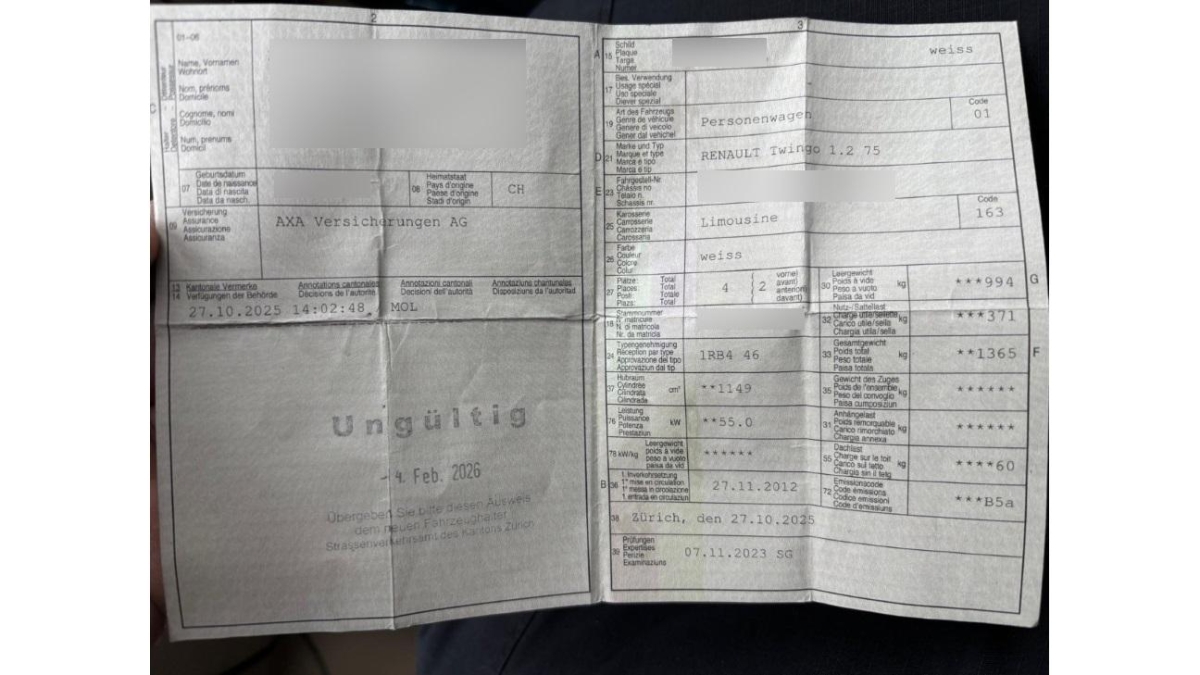 2
01-06
Name, Vornamen
Wohnort
Nom, prénoms
Domicile
Cognome, nomi
Domicilio
Num, prenums
Domicil
C
07
Geburtsdatum
Date de naissance
Data di nascita
Data da nasch.
08
Heimatstaat
Pays d'origine
Paese d'origine
Stadi d'origin
CH
09
Versicherung
Assurance
Assicurazione
Assicuranza
AXA Versicherungen AG
13
14
Kantonale Vermerke
Verfügungen der Behörde
Annotations cantonales
Décisions de l'autorité
Annotazioni cantonali
Decisioni dell'autorità
Annotaziuns chantunalas
Disposiziuns da l'autoritad
27.10.2025 14:02:48, MOL
Ungültig
- 4. Feb. 2026
Übergeben Sie bitte diesen Ausweis
dem neuen Fahrzeughalter
Strassenverkehrsamt des Kantons Zürich
3
A
15
Schild
Plaque
Targa
Numer
weiss
17
Bes. Verwendung
Usage spécial
Uso speciale
Diever spezial
19
Art des Fahrzeugs
Genre de véhicule
Genere di veicolo
Gener dal vehichel
Personenwagen
Code
01
D
21
Marke und Typ
Marque et type
Marca e tipo
Marca e tip
RENAULT Twingo 1.2 75
E
23
Fahrgestell-Nr
Châssis no
Telaio n.
Schassis nr.
25
Karosserie
Carrosserie
Carrozzeria
Carossaria
Limousine
Code
163
26
Farbe
Couleur
Colore
Colur
weiss
27
Plätze: Total
Places: Total
Posti: Totale
Plazs: Total
4
2
vorne)
avant)
anteriori)
davant)
30
Leergewicht
Poids à vide
Peso a vuoto
Paisa da vid
kg
***994
G
18
Stammnummer
N. matricule
N. di matricola
Nr. da matricla
32
Nutz-/Sattellast
Charge utile/sellette
Carico utile/sella
Chargia utila/sella
kg
***371
24
Typengenehmigung
Réception par type
Approvazione del tipo
Approvaziun dal tip
1RB4 46
33
Gesamtgewicht
Poids total
Peso totale
Paisa totala
kg
**1365
F
37
Hubraum
Cylindrée
Cilindrata
Cilindrada
cm³
**1149
35
Gewicht des Zuges
Poids de l'ensemble
Peso del convoglio
Paisa cumposiziun
kg
******
76
Leistung
Puissance
Potenza
Prestaziun
kW
**55.0
31
Anhängelast
Poids remorquable
Carico rimorchiato
Chargia annexa
kg
******
78 kW/kg
Leergewicht
poids à vide
peso a vuoto
paisa da vid
******
55
Dachlast
Charge sur le toit
Carico sul tetto
Chargia sin il tetg
kg
****60
B
36
1. Inverkehrsetzung
1re mise en circulation
1a messa in circolazione
1. entrada en circulaziun
27.11.2012
72
Emissionscode
Code émissions
Codice emissioni
Code d'emissiuns
***B5a
38
Zürich, den 27.10.2025
39
Prüfungen
Expertises
Perizie
Examinaziuns
07.11.2023 SG